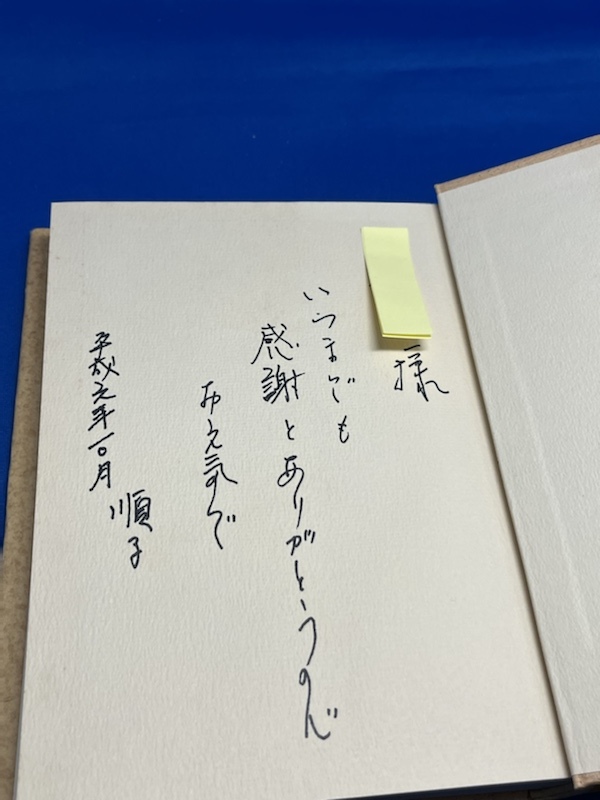 様
いつまでも
感謝とありがとうの心で
お元気で
平成元年一〇月
順子